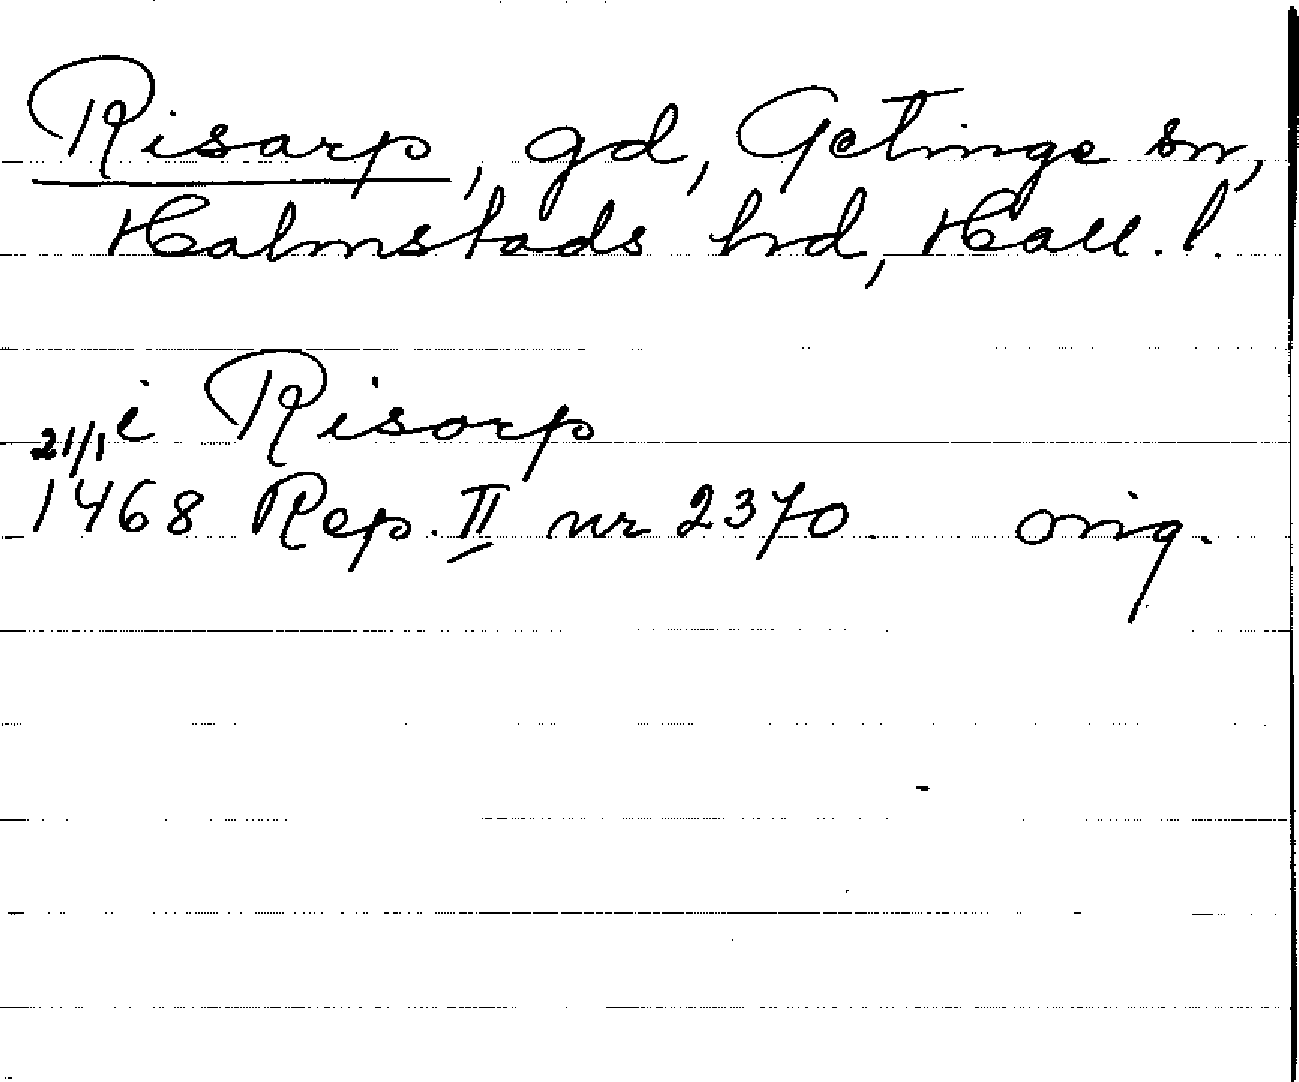 Risarp, gd, Getinge sn,
Halmstads hd, Hall. l.
i Risorp
21/1
1468 Rep. II nr 2370. orig.